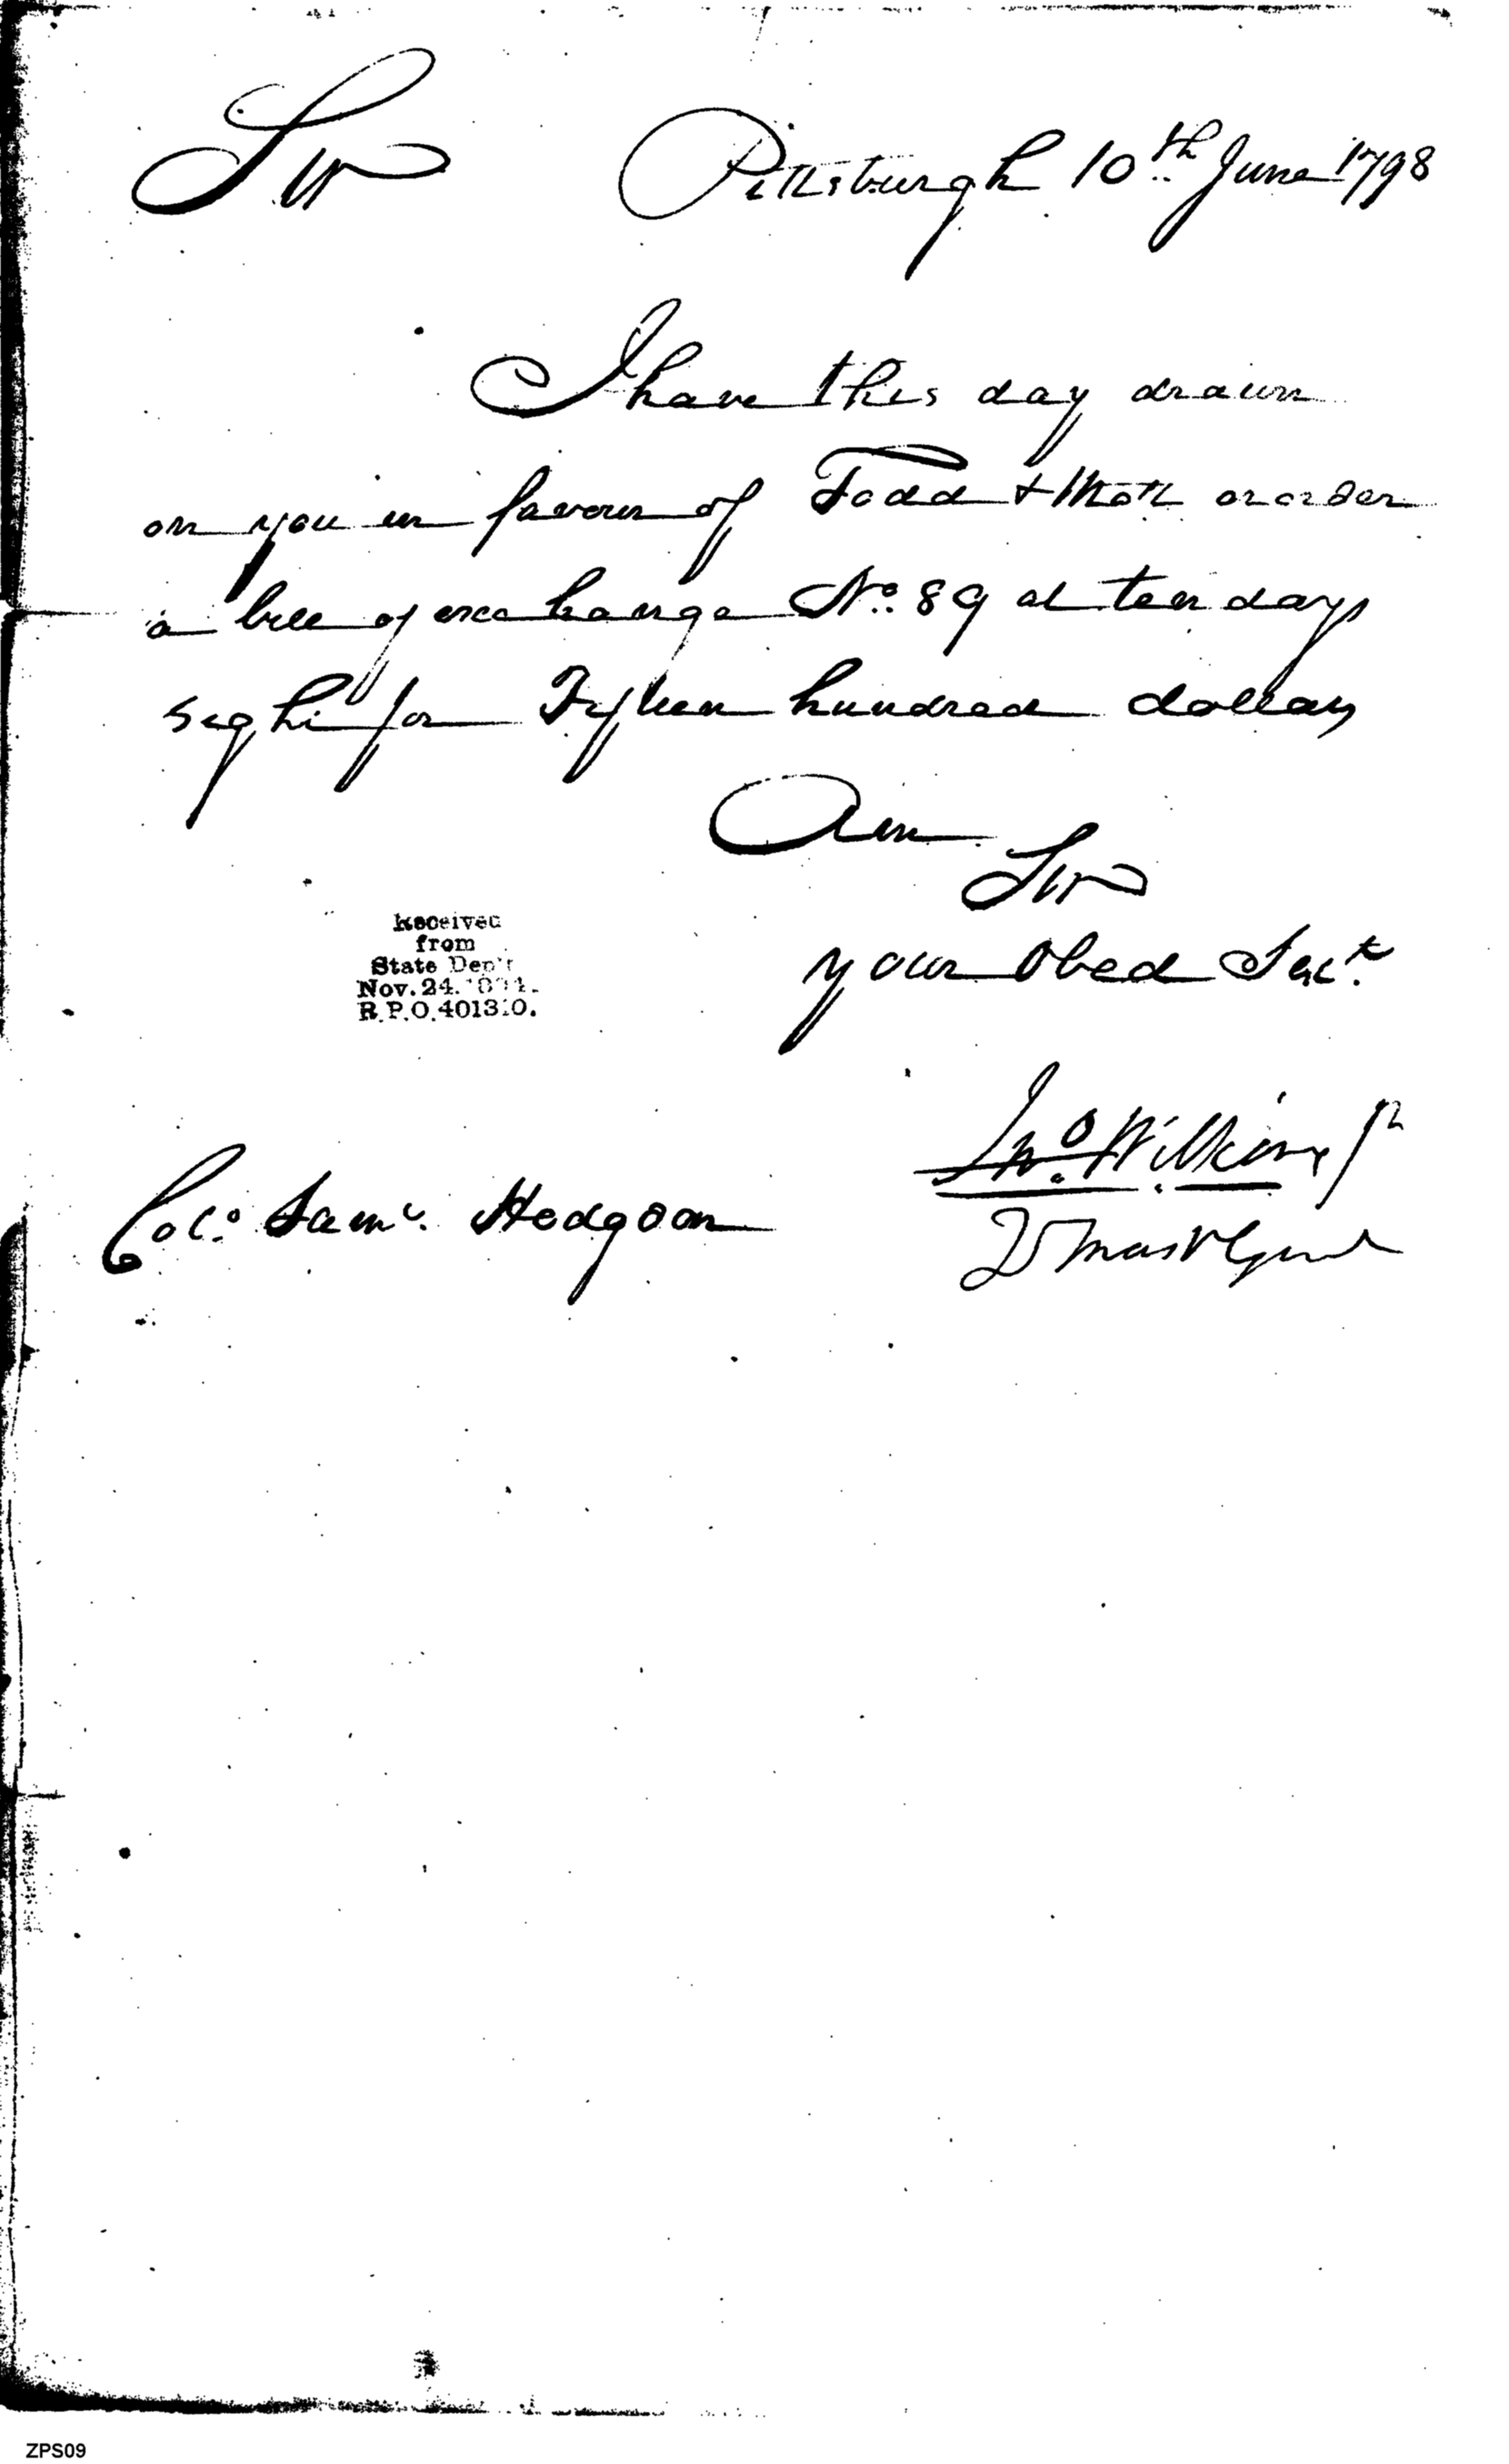 Sir Pittsburgh 10th June 1798
I have this day drawn
on you in favour of Todd & Mott or order
a bill of exchange No. 89 at ten days
sight for Fifteen hundred dollars
Am
Sir
your Obed Sert.
Jno. Wilkins Jr
Received
from
State Dep't
Nov. 24.
R.P.O.
Colo. Saml. Hodgson
ZPS09